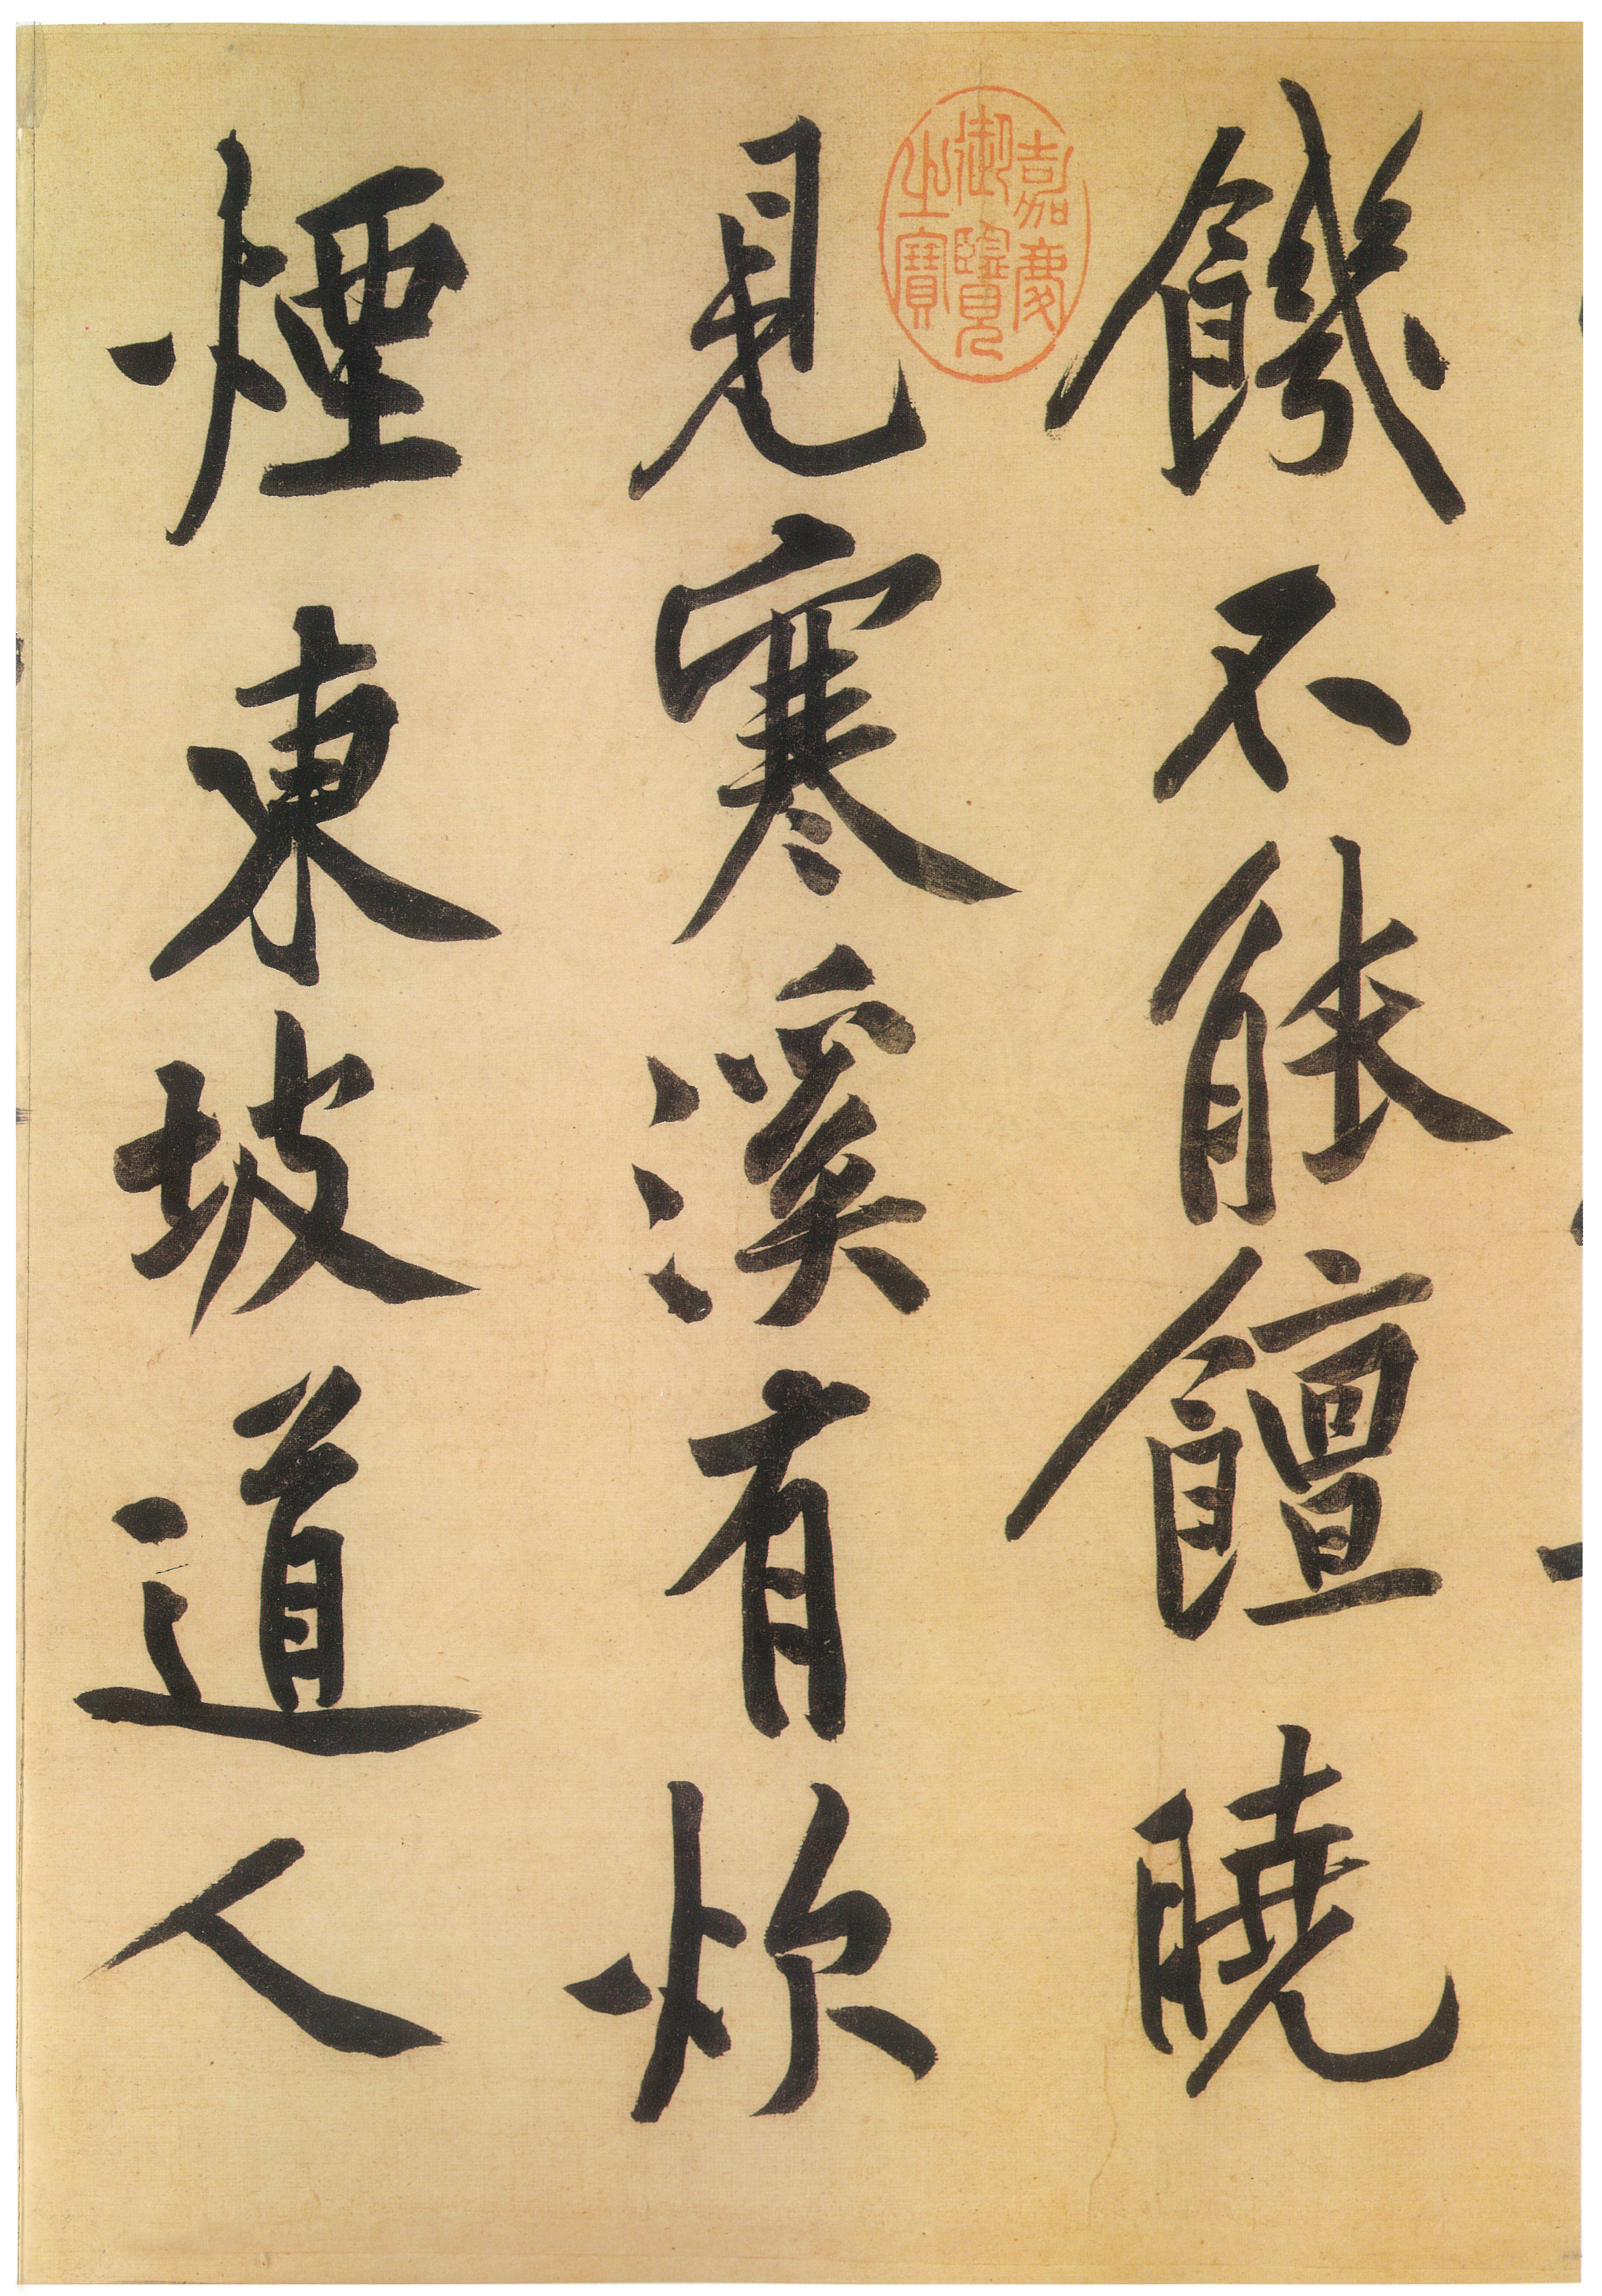 饑不能饘曉
見寒溪有炊
煙東坡道人
嘉慶
御覽
之寶